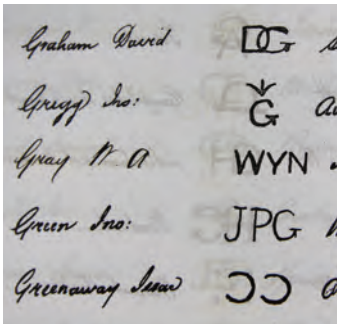 Graham David DG
Gregg Jno: G
Gray W A WYN
Green Jno: JPG
Greenaway Isaac